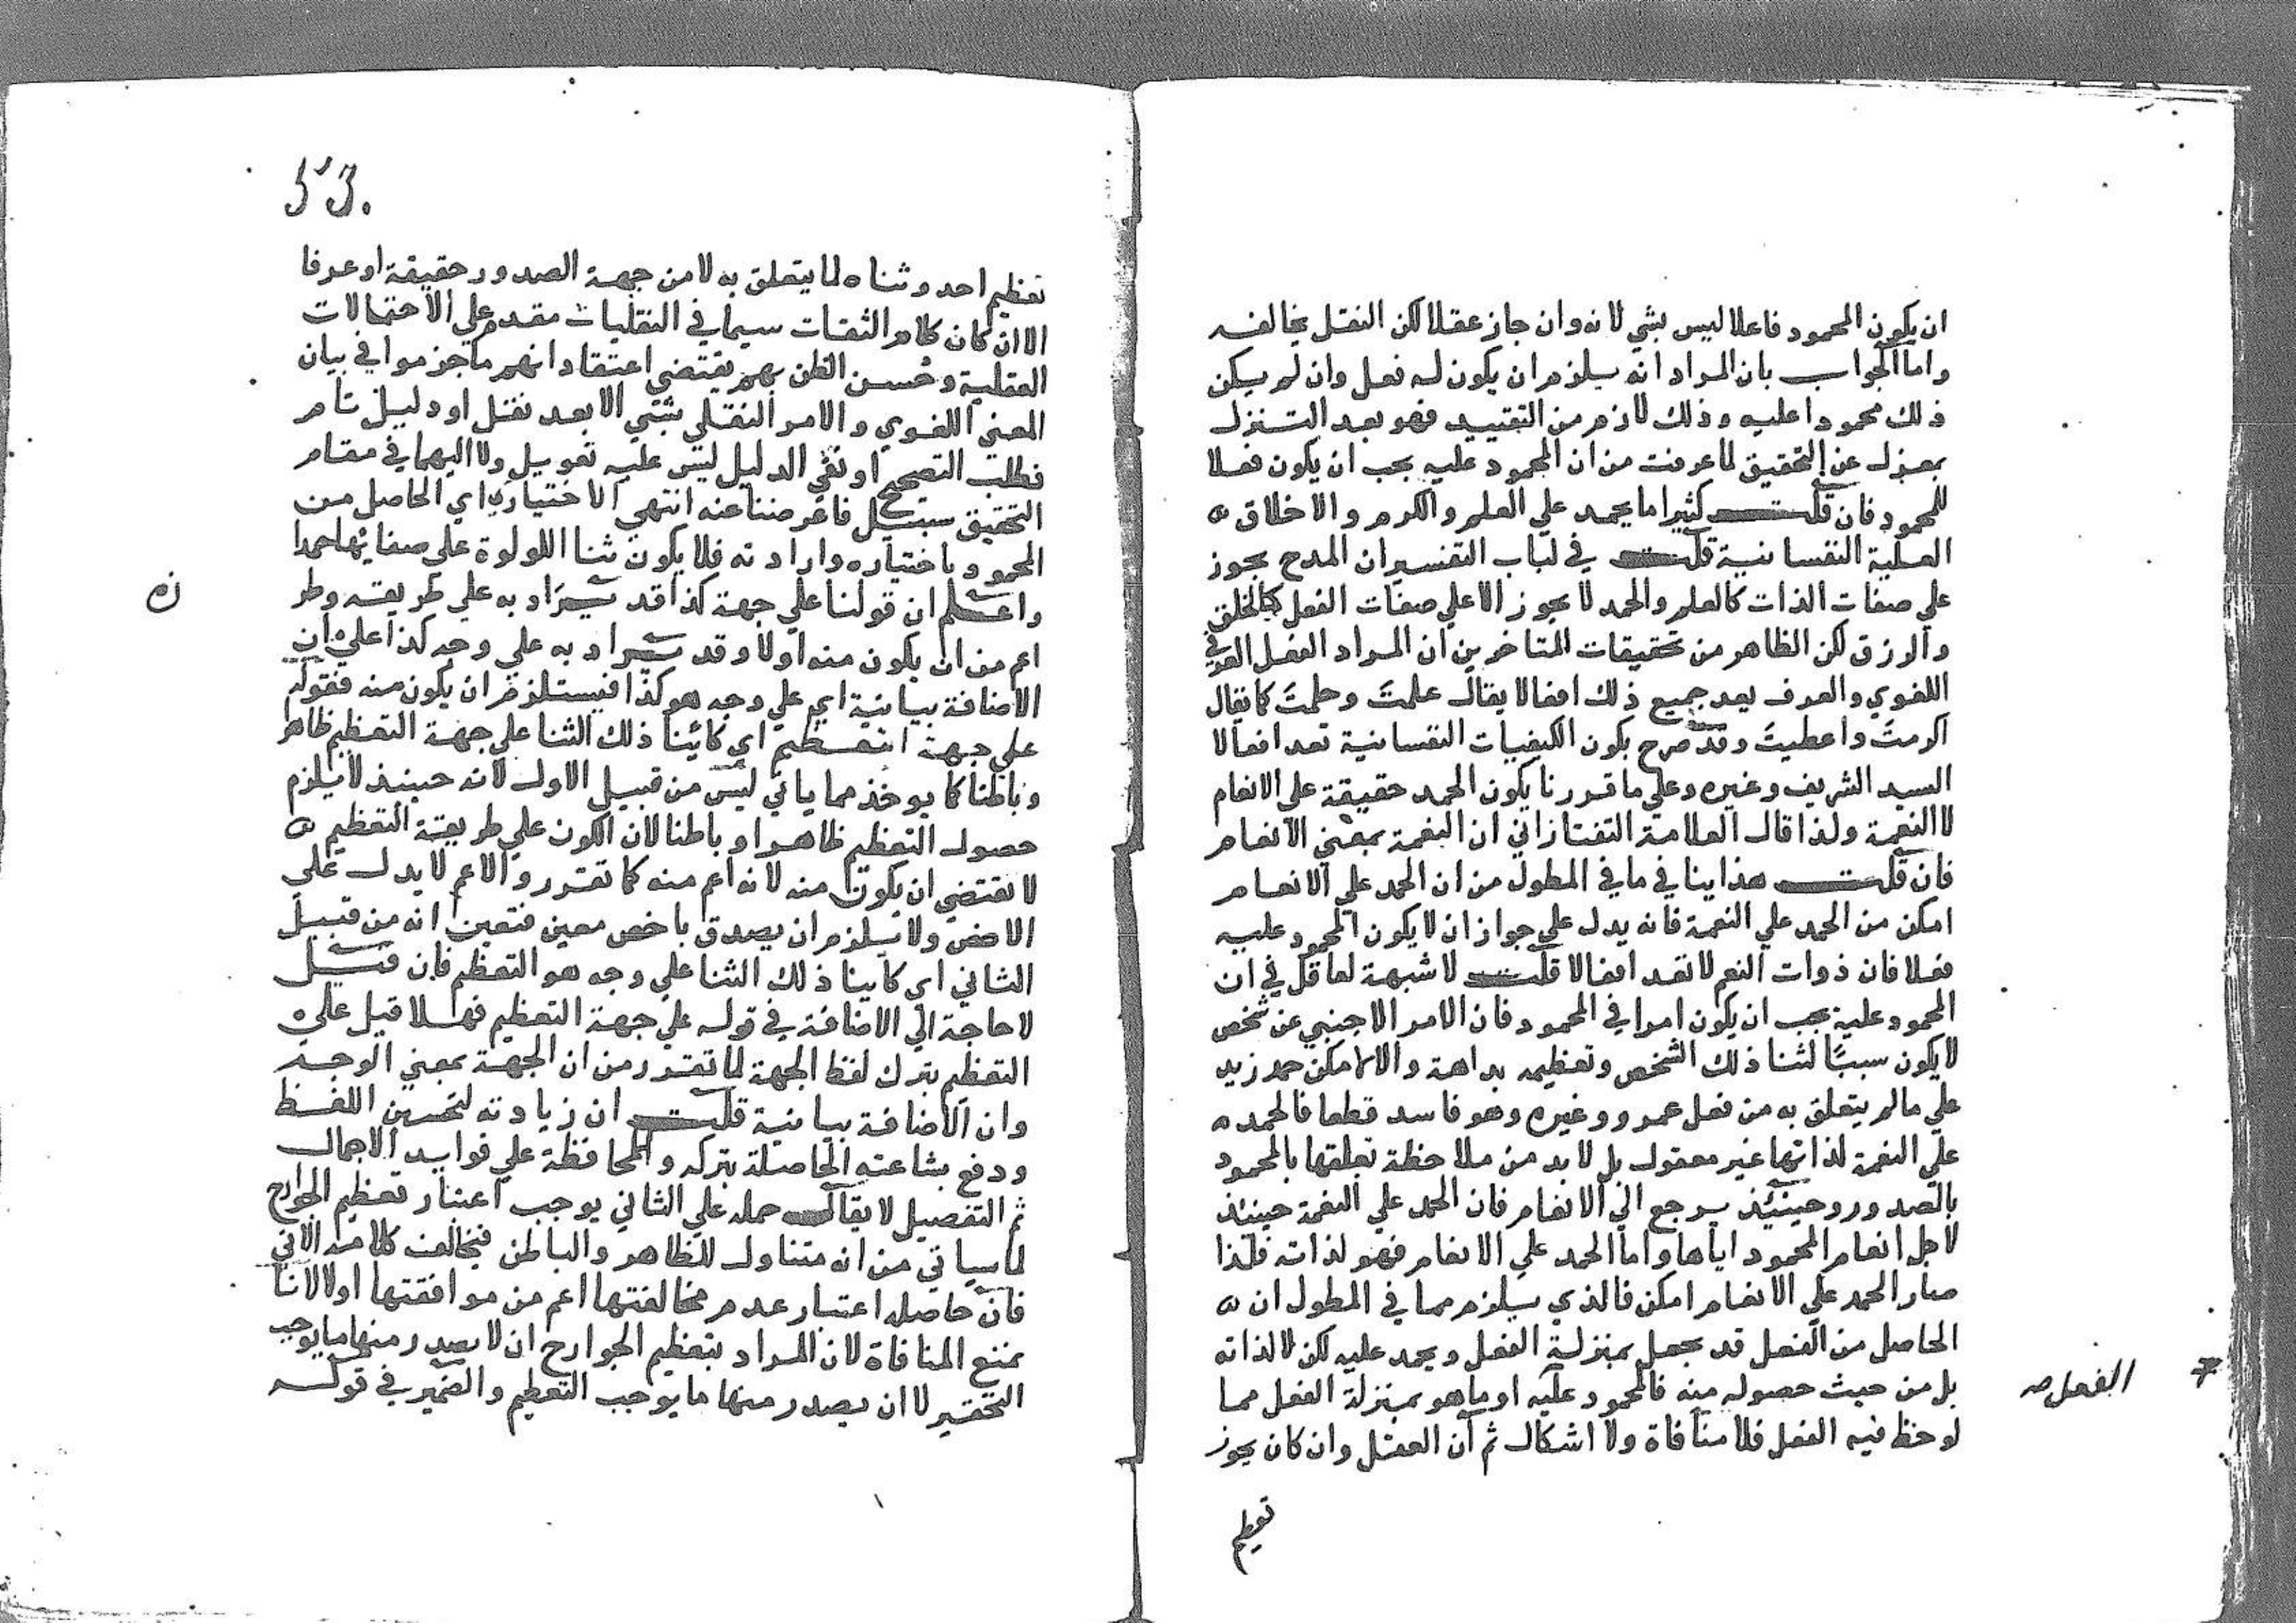 ان يكون المحمود فاعلا ليس بشي لانه وان جاز عقلا لكن النقل يخالفه
واما الجواب بان المراد انه يلزم ان يكون له فعل وان لم يكن
ذلك محمودا عليه وذلك لازم من التقييد فهو بعد التنزل
بمعزل عن التحقيق لما عرفت من ان المحمود عليه يجب ان يكون فعلا
للمحمود فان قلت كثيرا ما يحمد علي العلم والكرم والاخلاق
العلية النفسانية قلت في لباب التفسير ان المدح يجوز
علي صفات الذات كالعلم والحمد لا يجوز الا علي صفات الفعل كالخلق
والرزق لكن الظاهر من تحقيقات المتاخرين ان المراد الفعل العرفي
اللغوي والعرف يعد جميع ذلك افعالا يقال علمتَ وحلمتَ كما يقال
اكرمتَ واعطيتَ وقد صرح بكون الكيفيات النفسانية تعد افعالا
السيد الشريف وغيره وعلي ما قررنا يكون الحمد حقيقة علي الانعام
لا النعمة ولذا قال العلامة التفتازاني ان النعمة بمعني الانعام
فان قلت هذا ينافي ما في المطول من ان الحمد علي الانعام
امكن من الحمد علي النعمة فانه يدل علي جواز ان لا يكون المحمود عليه
فعلا فان ذوات النعم لا تعد افعالا قلت لا شبهة لعاقل في ان
المحمود عليه يجب ان يكون امرا في المحمود فان الامر الاجنبي عن شخص
لا يكون سببًا لثنا ذلك الشخص وتعظيمه بداهة والا لامكن حمد زيد
علي ما لم يتعلق به من فعل عمرو وغيره وهو فاسد قطعا فالحمد
علي النعمة لذاتها غير معقول بل لا بد من ملاحظة تعلقها بالمحمود
بالصدور وحينئذ يرجع الي الانعام فان الحمد علي النعمة حينئذ
لاجل انعام المحمود اياها واما الحمد علي الانعام فهو لذاته فلذا
صار الحمد علي الانعام امكن فالذي يلزم مما في المطول ان
الحاصل من الفعل قد يجعل بمنزلة الفعل ويحمد عليه لكن لا لذاته
بل من حيث حصوله منه فالمحمود عليه او ما هو بمنزلة الفعل مما
الفعل صح
لوحظ فيه الفعل فلا منافاة ولا اشكال ثم ان العقل وان كان يجوز
تعظيم
تعظيم احد وثناه لما يتعلق به لا من جهة الصدور حقيقة او عرفا
الا ان كان كلام الثقات سيما في النقليات مقدم علي الاحتمالات
العقلية وحُسن الظن بهم يقتضي اعتقاد انهم ما جزموا في بيان
المعني اللغوي والامر النقلي بشي الا بعد نقل او دليل تام
فطلب التصحيح او نفي الدليل ليس عليه تعويل ولا اليهما في مقام
التحقيق سبيل فاعرضنا عنه انتهي الاختياري اي الحاصل من
المحمود باختياره وارادته فلا يكون ثنا اللولوة علي صفائها حمدا
واعلم ان قولنا علي جهة كذا قد يُراد به علي طريقه وطر
زه
اعم من ان يكون منه اولا وقد يراد به علي وجه كذا علي ان
الاضافة بيانية اي علي وجه هو كذا فيستلزم ان يكون منه فقوله
علي جهة التعظيم اي كائنا ذلك الثنا علي جهة التعظيم ظاهر
وباطنا كما يوخذ مما ياتي ليس من قبيل الاول لانه حينئذ لا يلزم
حصول التعظيم ظاهرا وباطنا لان الكون علي طريقة التعظيم
لا يقتضي ان يكون منه لانه اعم منه كما تقرر والاعم لا يدل علي
الاخص ولا يلزم ان يصدق باخص معين فتعين انه من قبيل
الثاني اي كاينا ذلك الثنا علي وجه هو التعظيم فان قيل
لا حاجة الي الاضافة في قوله علي جهة التعظيم فهلا قيل علي
التعظيم بترك لفظ الجهة لما تقرر من ان الجهة بمعني الوجه
وان الاضافة بيانية قلت ان زيادته لتحسين اللفظ
ودفع بشاعته الحاصلة بتركه والمحافظة علي فوايد الاجمال
ثم التفصيل لا يقال حمله علي الثاني يوجب اعتبار تعظيم الجوارح
لما سياتي من انه متناول للظاهر والباطن فيخالف كلامه الاتي
فان حاصله اعتبار عدم مخالفتها اعم من موافقتها اولا لانا
نمنع المنافاة لان المراد بتعظيم الجوارح ان لا يصدر منها ما يوجب
التحقير لا ان يصدر منها ما يوجب التعظيم والضمير في قوله